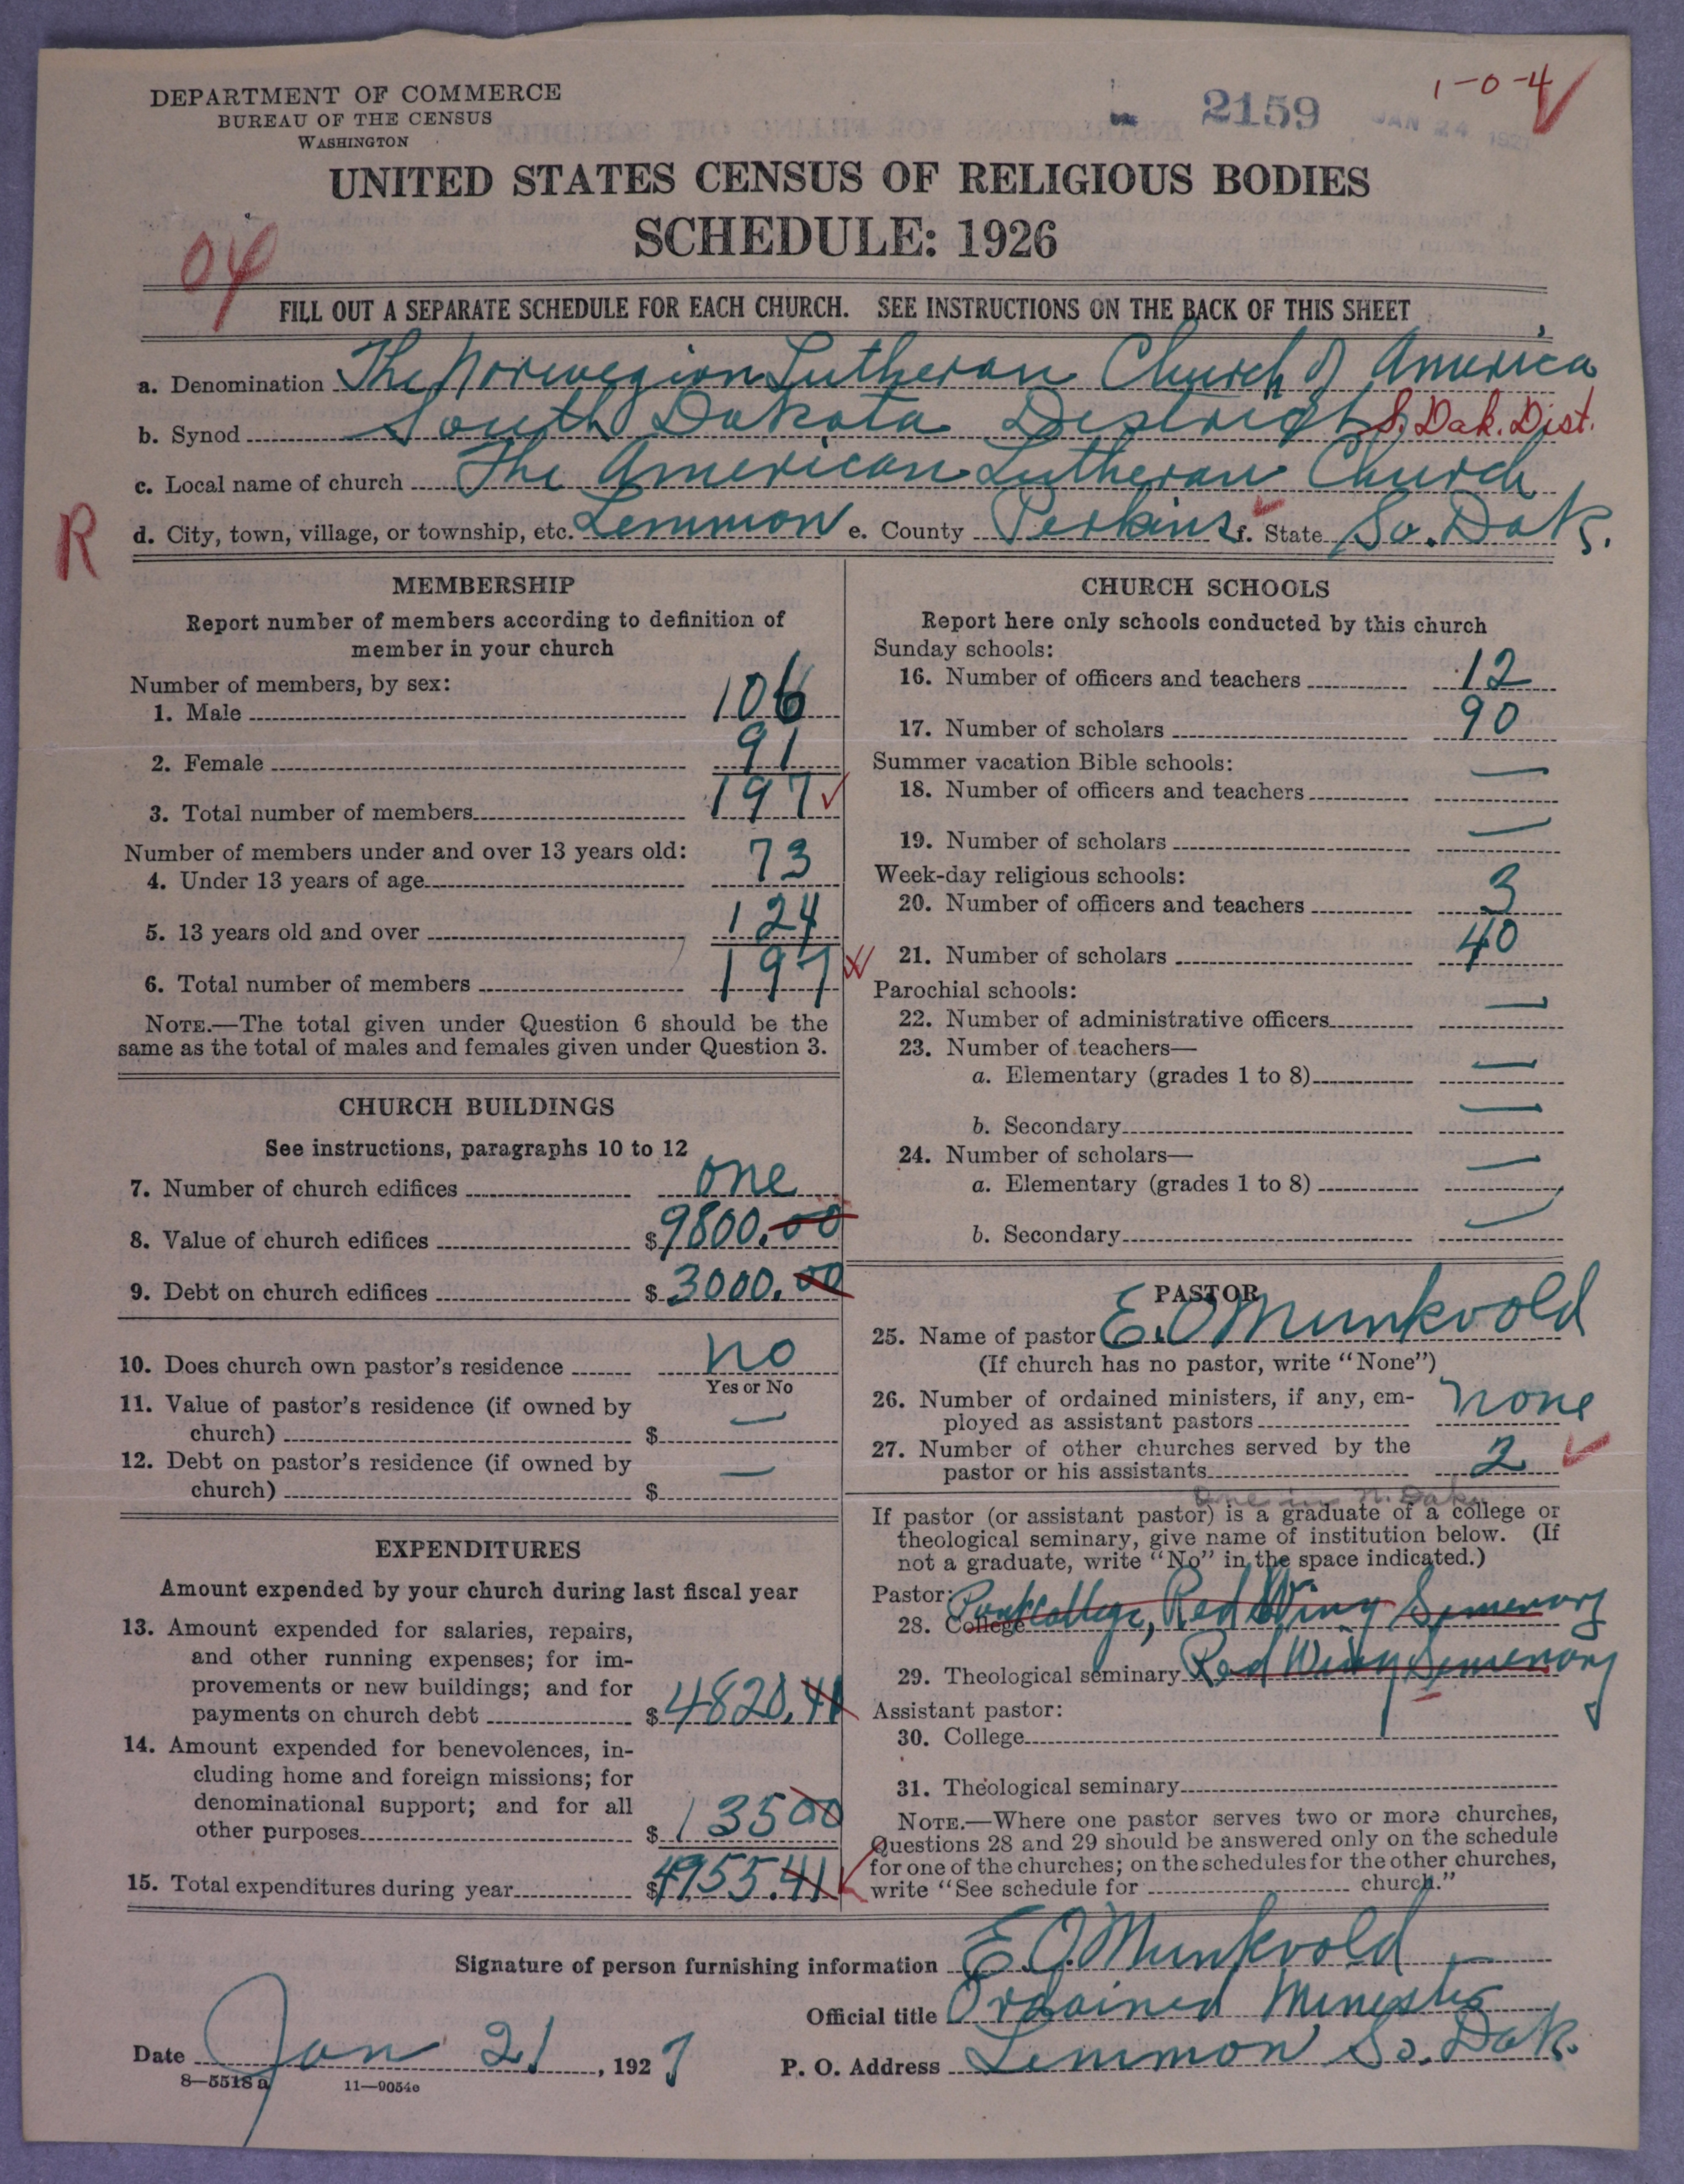 DEPARTMENT OF COMMERCE
BUREAU OF THE CENSUS
WASHINGTON
2159
JAN 24 1927
1-0-4
UNITED STATES CENSUS OF RELIGIOUS BODIES
SCHEDULE: 1926
04
FILL OUT A SEPARATE SCHEDULE FOR EACH CHURCH. SEE INSTRUCTIONS ON THE BACK OF THIS SHEET
a. Denomination The Norwegian Lutheran Church of America
b. Synod South Dakota District S. Dak. Dist.
c. Local name of church The American Lutheran Church
R
d. City, town, village, or township, etc. Lemmon e. County Perkins f. State So. Dak.
MEMBERSHIP
Report number of members according to definition of
member in your church
Number of members, by sex:
1. Male 106
2. Female 91
3. Total number of members 197
Number of members under and over 13 years old:
4. Under 13 years of age 73
5. 13 years old and over 124
6. Total number of members 197
NOTE.—The total given under Question 6 should be the
same as the total of males and females given under Question 3.
CHURCH BUILDINGS
See instructions, paragraphs 10 to 12
7. Number of church edifices one
8. Value of church edifices $9800.00
9. Debt on church edifices $3000.00
10. Does church own pastor's residence no
Yes or No
11. Value of pastor's residence (if owned by
church) $ —
12. Debt on pastor's residence (if owned by
church) $ —
EXPENDITURES
Amount expended by your church during last fiscal year
13. Amount expended for salaries, repairs,
and other running expenses; for im-
provements or new buildings; and for
payments on church debt $4820.41
14. Amount expended for benevolences, in-
cluding home and foreign missions; for
denominational support; and for all
other purposes $135 00
15. Total expenditures during year $4955.41
CHURCH SCHOOLS
Report here only schools conducted by this church
Sunday schools:
16. Number of officers and teachers 12
17. Number of scholars 90
Summer vacation Bible schools:
18. Number of officers and teachers —
19. Number of scholars —
Week-day religious schools:
20. Number of officers and teachers 3
21. Number of scholars 40
Parochial schools:
22. Number of administrative officers —
23. Number of teachers—
a. Elementary (grades 1 to 8) —
b. Secondary —
24. Number of scholars—
a. Elementary (grades 1 to 8) —
b. Secondary —
PASTOR
25. Name of pastor E. O Munkvold
(If church has no pastor, write "None")
26. Number of ordained ministers, if any, em-
ployed as assistant pastors none
27. Number of other churches served by the
pastor or his assistants 2
One in N. Dak.
If pastor (or assistant pastor) is a graduate of a college or
theological seminary, give name of institution below. (If
not a graduate, write "No" in the space indicated.)
Pastor:
28. College Park College, Red Wing Semenary
29. Theological seminary Red Wing Semenary
Assistant pastor:
30. College
31. Theological seminary
NOTE.—Where one pastor serves two or more churches,
Questions 28 and 29 should be answered only on the schedule
for one of the churches; on the schedules for the other churches,
write "See schedule for church."
Signature of person furnishing information E. O. Munkvold
Official title Ordained Minister
Date Jan 21, 1927 P. O. Address Lemmon So. Dak.
8—5518 a 11—9054c